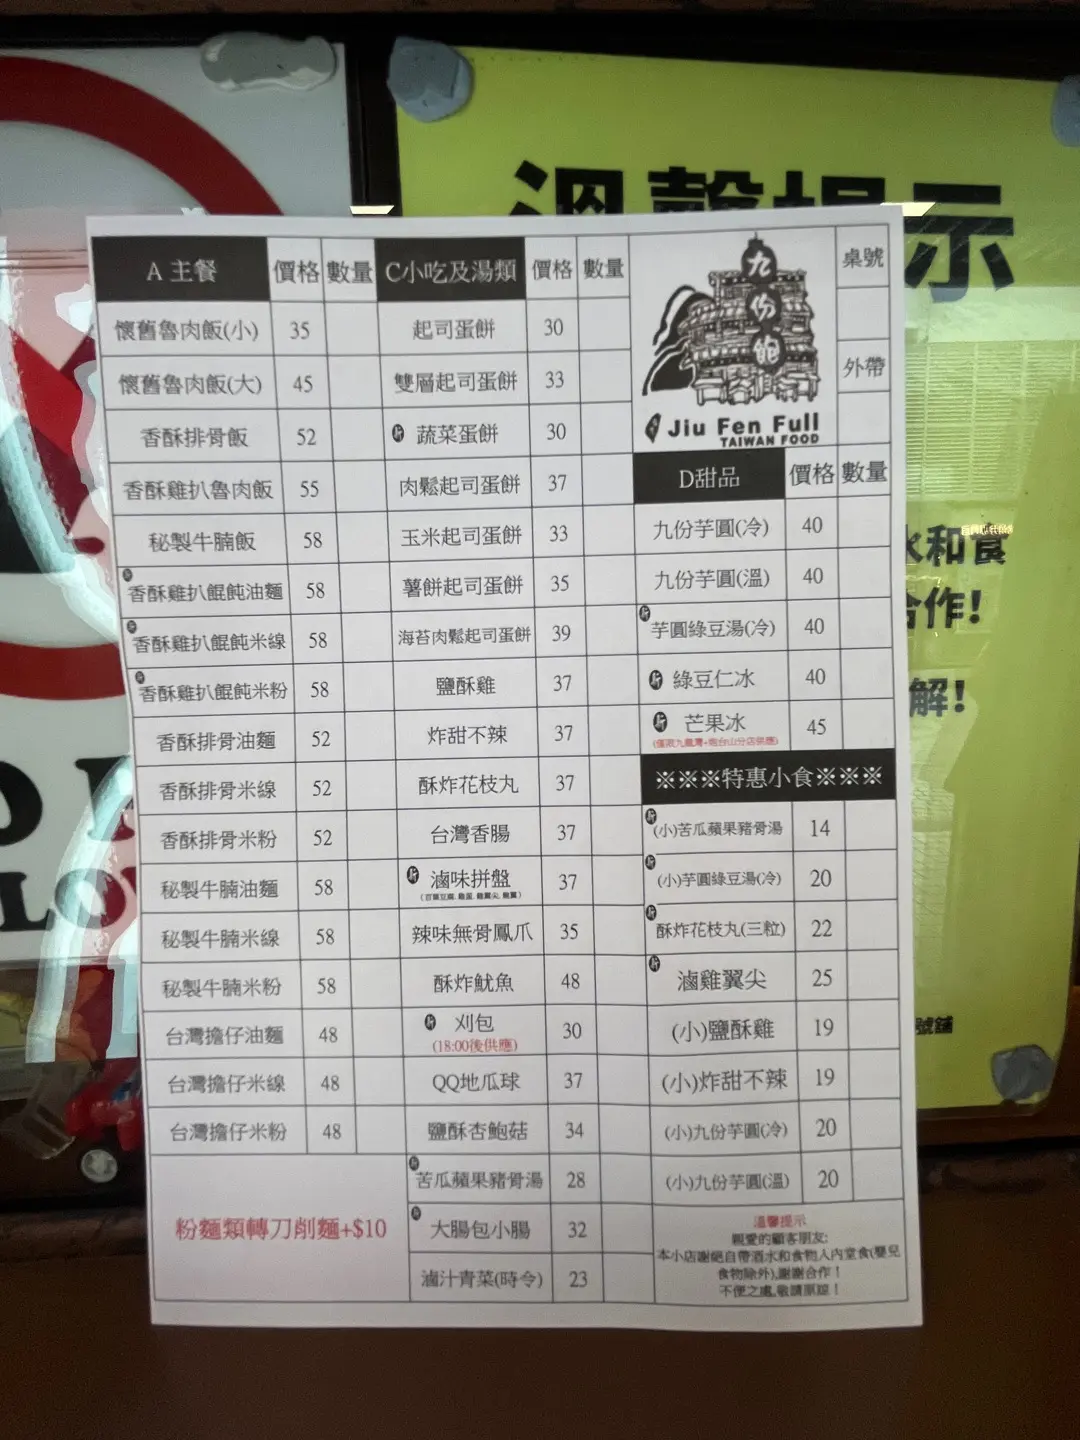 溫馨提示
水和食
合作!
解!
號舖
A 主餐 價格 數量
懷舊魯肉飯(小) 35
懷舊魯肉飯(大) 45
香酥排骨飯 52
香酥雞扒魯肉飯 55
秘製牛腩飯 58
新 香酥雞扒餛飩油麵 58
新 香酥雞扒餛飩米線 58
新 香酥雞扒餛飩米粉 58
香酥排骨油麵 52
香酥排骨米線 52
香酥排骨米粉 52
秘製牛腩油麵 58
秘製牛腩米線 58
秘製牛腩米粉 58
台灣擔仔油麵 48
台灣擔仔米線 48
台灣擔仔米粉 48
粉麵類轉刀削麵+$10
C小吃及湯類 價格 數量
起司蛋餅 30
雙層起司蛋餅 33
新 蔬菜蛋餅 30
肉鬆起司蛋餅 37
玉米起司蛋餅 33
薯餅起司蛋餅 35
海苔肉鬆起司蛋餅 39
鹽酥雞 37
炸甜不辣 37
酥炸花枝丸 37
台灣香腸 37
新 滷味拼盤 37
辣味無骨鳳爪 35
酥炸魷魚 48
新 刈包 30
(18:00後供應)
QQ地瓜球 37
鹽酥杏鮑菇 34
新 苦瓜蘋果豬骨湯 28
新 大腸包小腸 32
滷汁青菜(時令) 23
九份飽
Jiu Fen Full
TAIWAN FOOD
桌號
外帶
D甜品 價格 數量
九份芋圓(冷) 40
九份芋圓(溫) 40
新 芋圓綠豆湯(冷) 40
新 綠豆仁冰 40
新 芒果冰 45
※※※特惠小食※※※
新 (小)苦瓜蘋果豬骨湯 14
新 (小)芋圓綠豆湯(冷) 20
新 酥炸花枝丸(三粒) 22
新 滷雞翼尖 25
(小)鹽酥雞 19
(小)炸甜不辣 19
(小)九份芋圓(冷) 20
(小)九份芋圓(溫) 20
溫馨提示
親愛的顧客朋友:
本小店謝絕自帶酒水和食物入內堂食(嬰兒
食物除外),謝謝合作！
不便之處,敬請原諒！